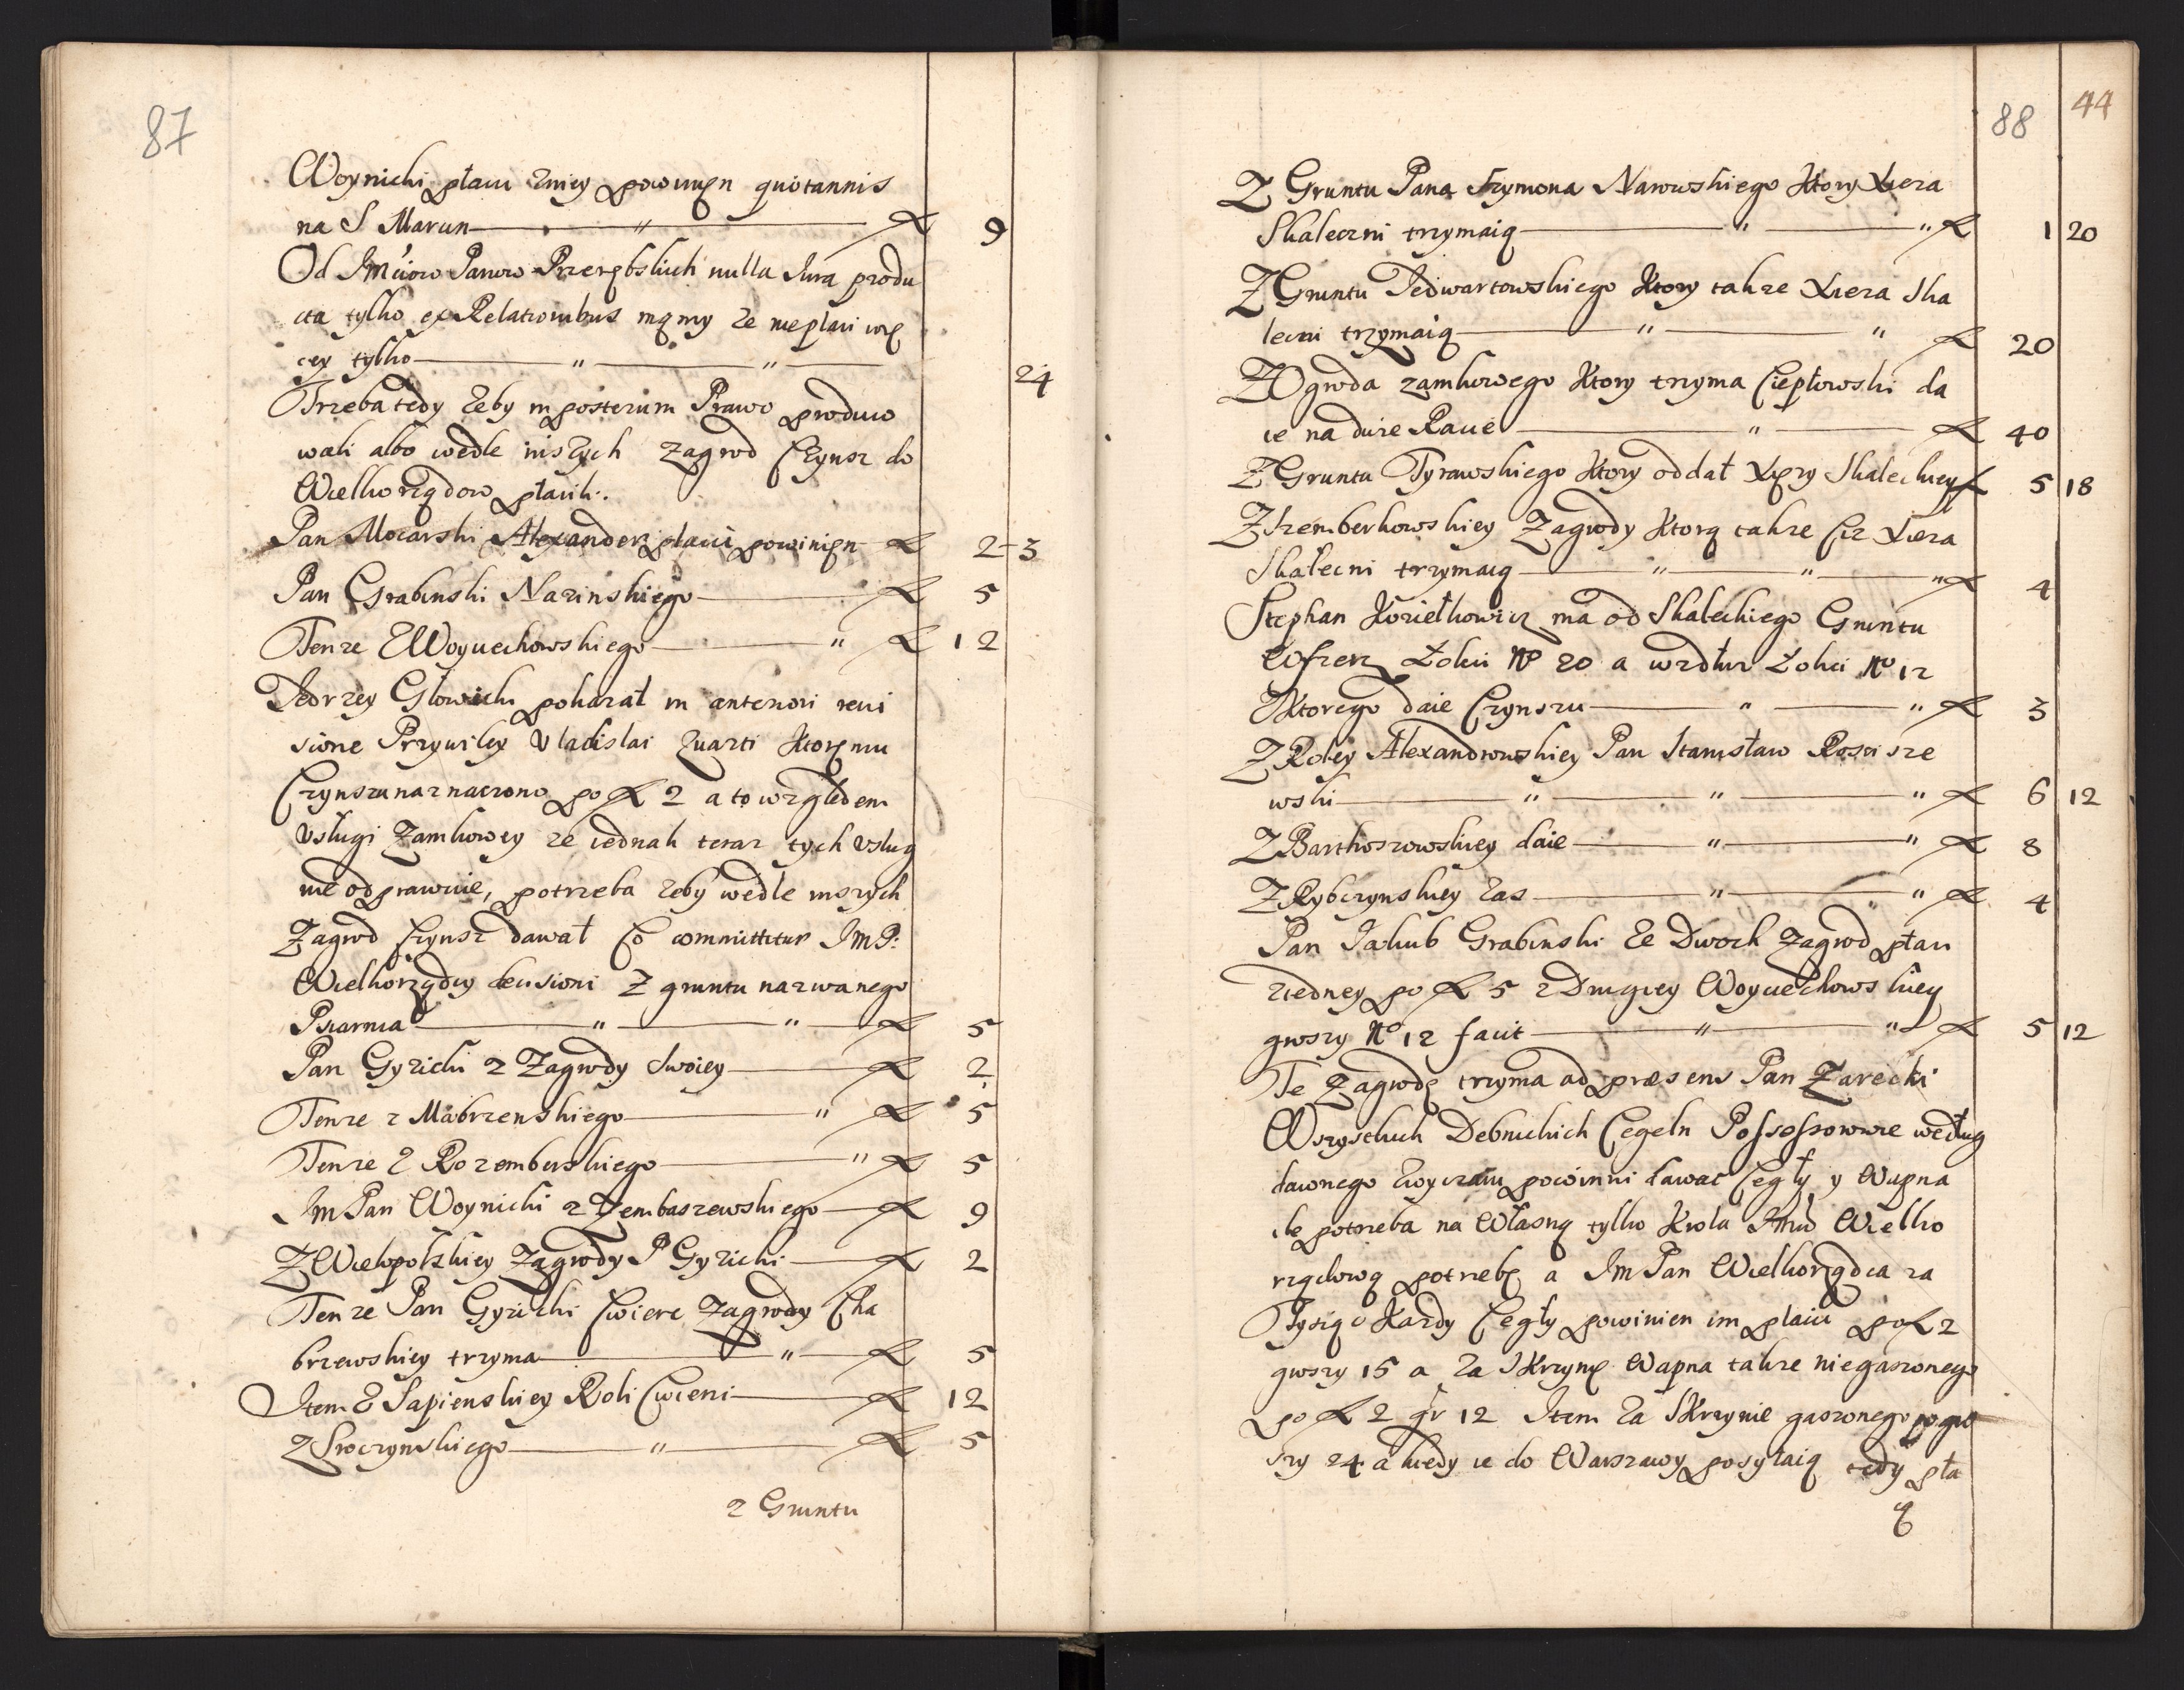 87
Woynicki płacic zniey powinięn quotannis
na S Marcin — " — fl 9
Od Imciow Panow Przerębskich nulla Iura produ
cta tylko ex Relationibus mąmy ze nie płaci wię
cey tylko — " — " — 24
Trzeba tedy zeby in posterum Prawo produco
wali albo wedle inszych zagrod Czynsz do
Wielkorządow płacili.
Pan Mocarski Alexander płacic powinięn fl 2 3
Pan Grabinski Nazinskiego — fl 5
Tenze z Woyciechowskiego — " fl 12
Jedrzey Głowicki pokazał in anteriori revi
sione Przywiley Vladislai Quarti Ktoręmu
Czynszu naznaczono po fl 2 a to względem
Vsługi Zamkowey ze iednak teraz tych Vsług
nie odprawuie, potrzeba zeby wedle inszych
Zagrod Czynsz dawał Co committitur ImP:
Wielkorządcy decisioni Z gruntu nazwanego
Psiarnia — " — " — fl 5
Pan Gyzicki z Zagrody swoiey — fl 2
Tenze z Mabrzenskiego — " fl 5
Tenze z Rozemberskiego — " fl 5
Im Pan Woynicki z Dembaszewskiego — fl 9
Z Wielopolskiey Zagrody P Gyzicki — fl 2
Tenze Pan Gyzicki Cwierc Zagrody Cha
brzewskiey trzyma — " — fl 5
Item z Sapienskiey Roli Cwierci — fl 12
z Sroczynskiego — " — fl 5
z Gruntu
88
44
Z Gruntu Pana Szymona Narowskiego Ktory Xieza
Skaleczni trzymaią — " — " fl 1 20
Z Gruntu Jedwartowskiego Ktory takze Xieza Ska
leczni trzymaią — " — " fl 20
Z Ogroda zamkowego Ktory trzyma Ciepłowski da
ie na dwie Racie — " — fl 40
Z Gruntu Tyrawskiego Ktory oddał Xięzy Skaleckiey fl 5 18
Z Szemberkowskiey Zagrody Ktorą takze Ciz Xieza
Skałecni trzymaią — " — " — " fl 4
Stephan Koziełkowicz ma od Skaleckiego Gruntu
Wszerz Łokci No 20 a wzdłuz Łokci No 12
Z Ktorego daie Czynszu — " — " fl 3
Z Roley Alexandrowskiey Pan Stanisław Roscisze
wski — " — " — " fl 6 12
Z Barthoszowskiey daie — " — " fl 8
Z Rybczynskiey Zas — " — " fl 4
Pan Jakub Grabinski Ze Dwoch Zagrod płaci
z iedney po fl 5 z Drugiey Woyciechowskiey
groszy No 12 facit — " — " fl 5 12
Te Zagrodę trzyma ad præsens Pan Zarecki
Wszystkich Debnickich Cegeln Possessorowie według
dawnego zwyczaiu powinni dawac Cegły y Wapna
ile potrzeba na Własną tylko Krola Jmci Wielko
rządową potrzebę a Im Pan Wielkorządca za
Tysiąc Kazdy Cegły powinien im płacic po fl 2
groszy 15 a Za Skrzynę Wapna takze niegaszonego
po fl 2 gr 12 Item Za Skrzynie gaszonego po gro
szy 24 a kiedy ie do Warszawy posyłaią tedy pła
cą